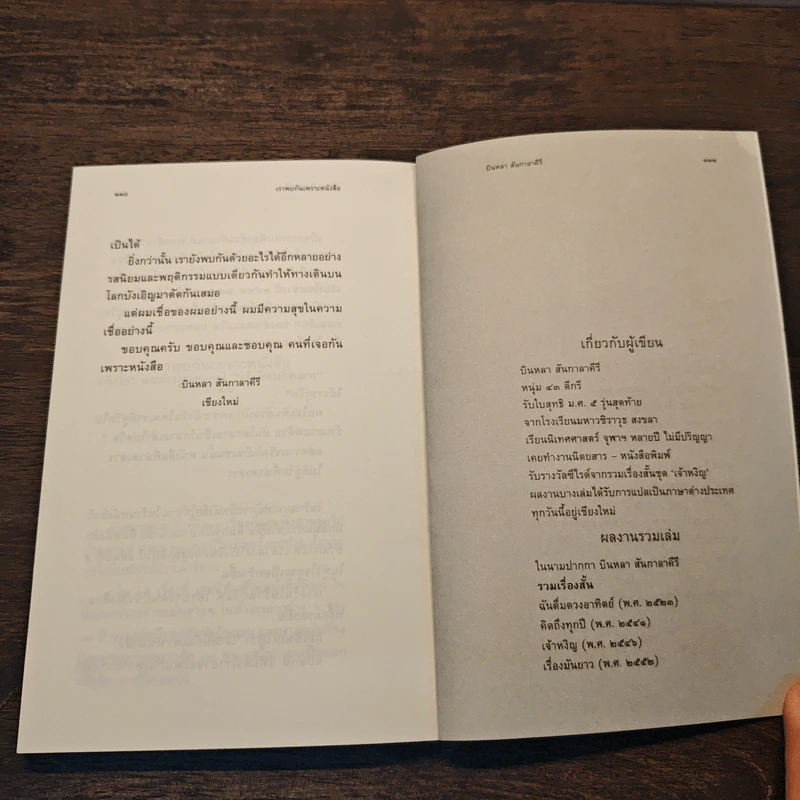 ๑๑๐
เราพบกันเพราะหนังสือ
เป็นได้
ยิ่งกว่านั้น เรายังพบกันด้วยอะไรได้อีกหลายอย่าง
รสนิยมและพฤติกรรมแบบเดียวกันทำให้ทางเดินบน
โลกบังเอิญมาตัดกันเสมอ
แต่ผมเชื่อของผมอย่างนี้ ผมมีความสุขในความ
เชื่ออย่างนี้
ขอบคุณครับ ขอบคุณและชอบคุณ คนที่เจอกัน
เพราะหนังสือ
บินหลา สันกาลาคีรี
เชียงใหม่
บินหลา สันกาลาคีรี
๑๑๑
เกี่ยวกับผู้เขียน
บินหลา สันกาลาคีรี
หนุ่ม ๔๓ ดีกรี
รับใบสุทธิ ม.ศ. ๕ รุ่นสุดท้าย
จากโรงเรียนมหาวชิราวุธ สงขลา
เรียนนิเทศศาสตร์ จุฬาฯ หลายปี ไม่มีปริญญา
เคยทำงานนิตยสาร – หนังสือพิมพ์
รับรางวัลซีไรต์จากรวมเรื่องสั้นชุด ‘เจ้าหงิญ’
ผลงานบางเล่มได้รับการแปลเป็นภาษาต่างประเทศ
ทุกวันนี้อยู่เชียงใหม่
ผลงานรวมเล่ม
ในนามปากกา บินหลา สันกาลาคีรี
รวมเรื่องสั้น
ฉันดื่มดวงอาทิตย์ (พ.ศ. ๒๕๓๓)
คิดถึงทุกปี (พ.ศ. ๒๕๔๑)
เจ้าหงิญ (พ.ศ. ๒๕๔๖)
เรื่องมันยาว (พ.ศ. ๒๕๕๒)